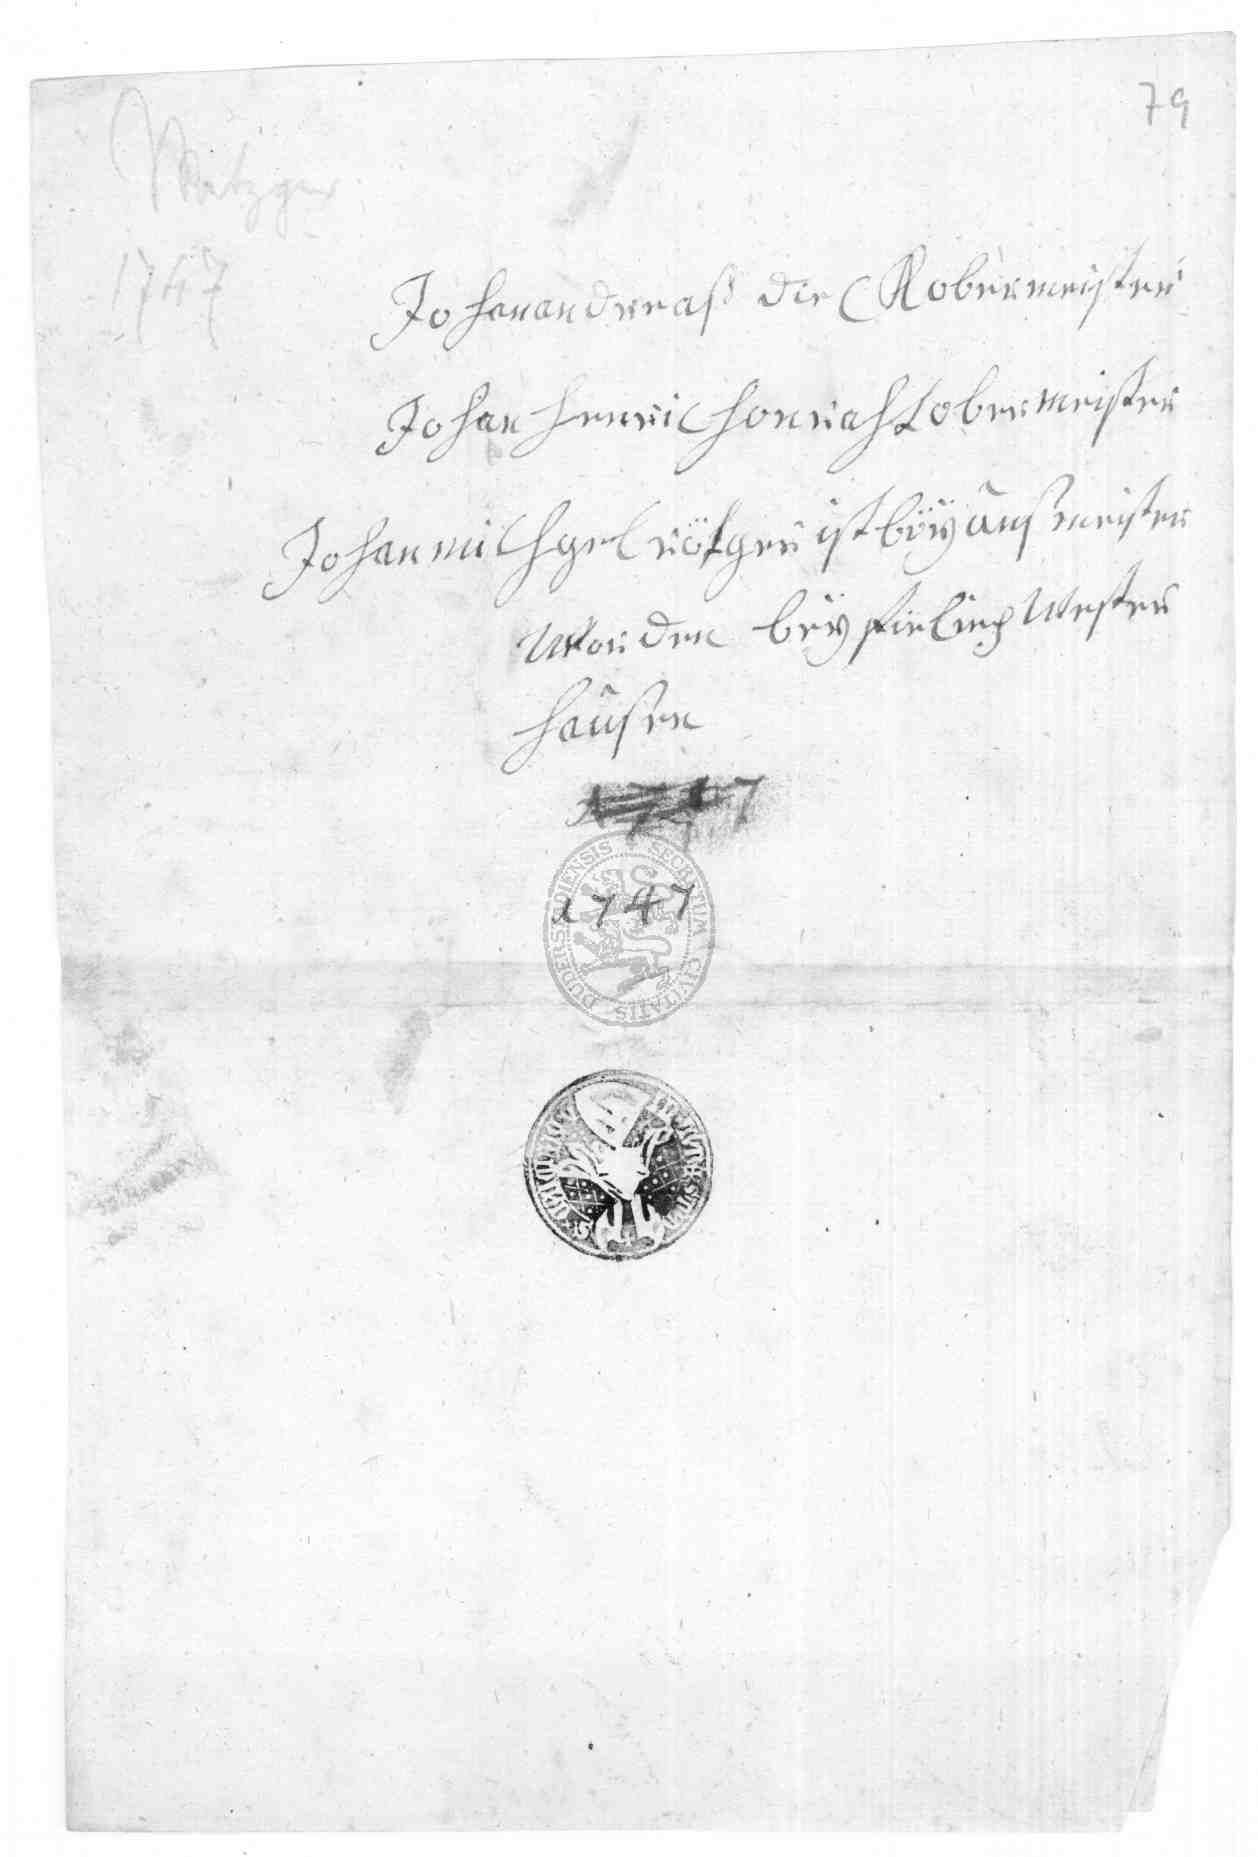 79
Metzger
1747
Johanandreaß dirCK obermeister
Johan henrich honraht obermeister
Johanmichgel rötger ist beÿ außmeister
Worden beÿ Wester
hausen
1747
1747
SECRETUM CIVITATIS DUDERSTADIENSIS